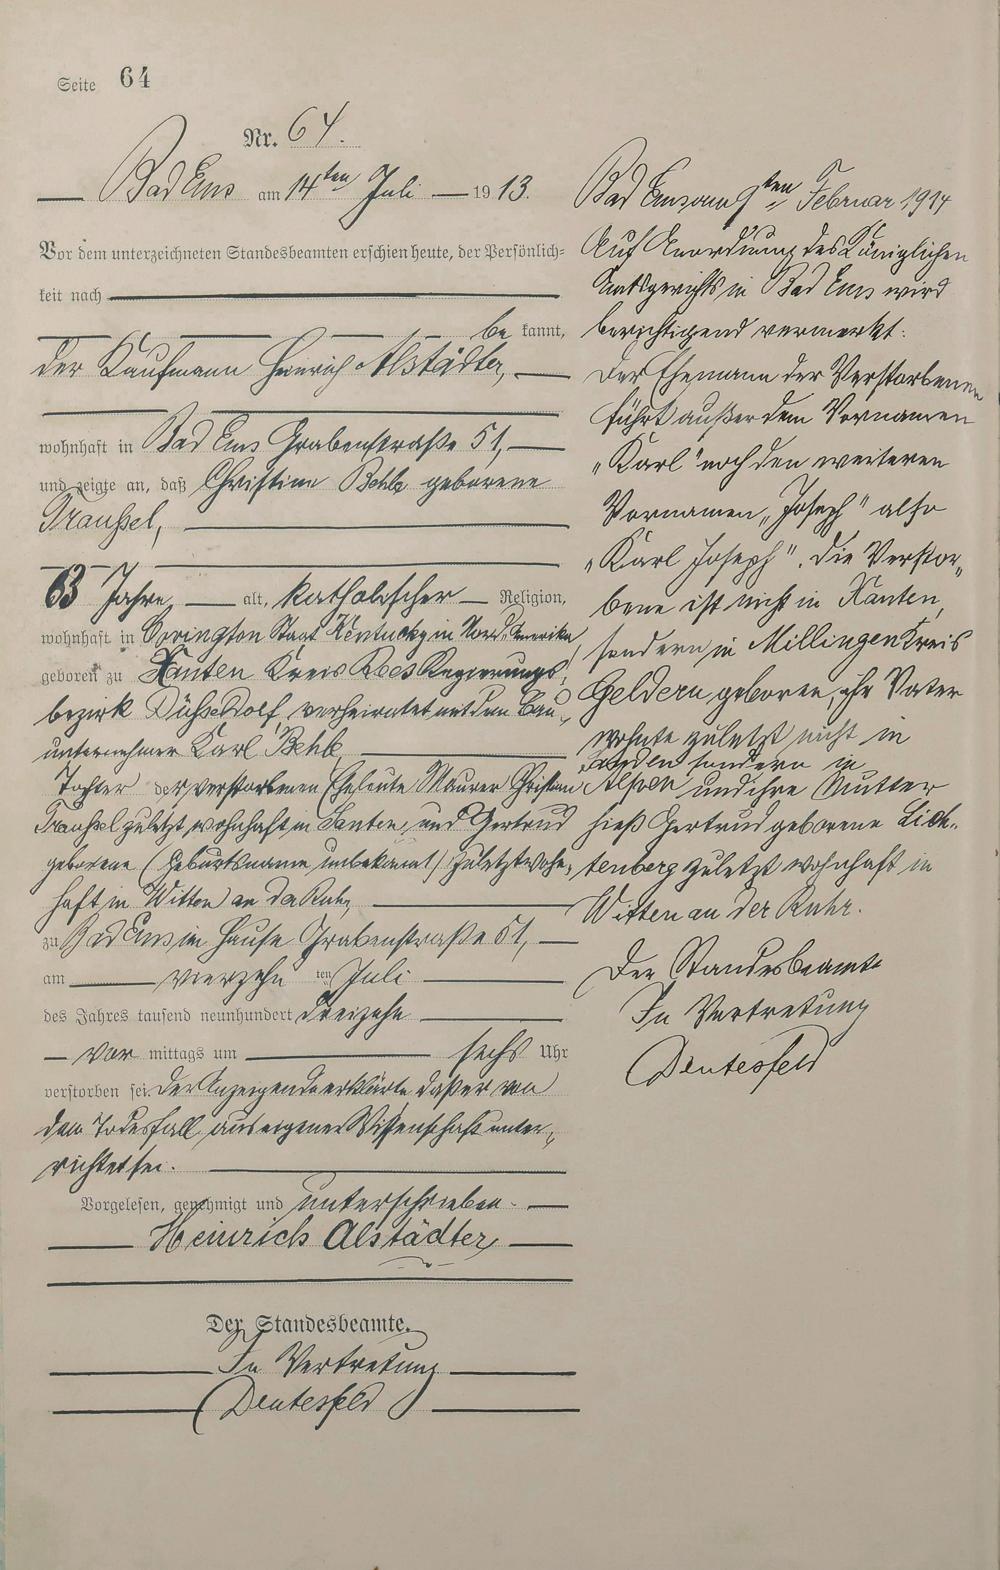 Seite 64
Nr. 64.
Bad Ems am 14ten Juli 1913.
Vor dem unterzeichneten Standesbeamten erschien heute, der Persönlich=
keit nach
be kannt,
der Kaufmann Heinrich Alstädter,
wohnhaft in Bad Ems Grabenstraße 51,
und zeigte an, daß Christine Behle geborene
63 Jahre alt, katholischer Religion,
wohnhaft in Covington Staat Kentucky in Nord-Amerika,
geboren zu Xanten Kreis Rees Regierungs-
bezirk Düsseldorf, verheiratet mit dem Bau-
unternehmer Karl Behle
Tochter der verstorbenen Eheleute Maurer Christian
zuletzt wohnhaft in Xanten, und Gertrud
geborene (Geburtsname unbekannt) zuletzt wohn-
haft in Witten an der Ruhr,
zu Bad Ems im Hause Grabenstraße 51,
am vierzehn ten Juli
des Jahres tausend neunhundert dreizehn
vor mittags um sechs Uhr
verstorben sei. Der Anzeigende erklärte, daß er von
dem Todesfall aus eigener Wissenschaft unter-
richtet sei.
Vorgelesen, genehmigt und unterschrieben.
Heinrich Alstädter
Der Standesbeamte.
In Vertretung
Deutesfeld
Bad Ems am 9ten Februar 1914
Auf Anordnung des Königlichen
Amtsgerichts in Bad Ems wird
berichtigend vermerkt:
Der Ehemann der Verstorbenen
führt außer dem Vornamen
„Karl" noch den weiteren
Vornamen „Joseph" also
„Karl Joseph". Die Verstor-
bene ist nicht in Xanten,
sondern in Millingen Kreis
Geldern geboren, ihr Vater
wohnte zuletzt nicht in
Xanten sondern in
Alpen und ihre Mutter
hieß Gertrud geborene Lich-
tenberg zuletzt wohnhaft in
Witten an der Ruhr.
Der Standesbeamte
In Vertretung
Deutesfeld